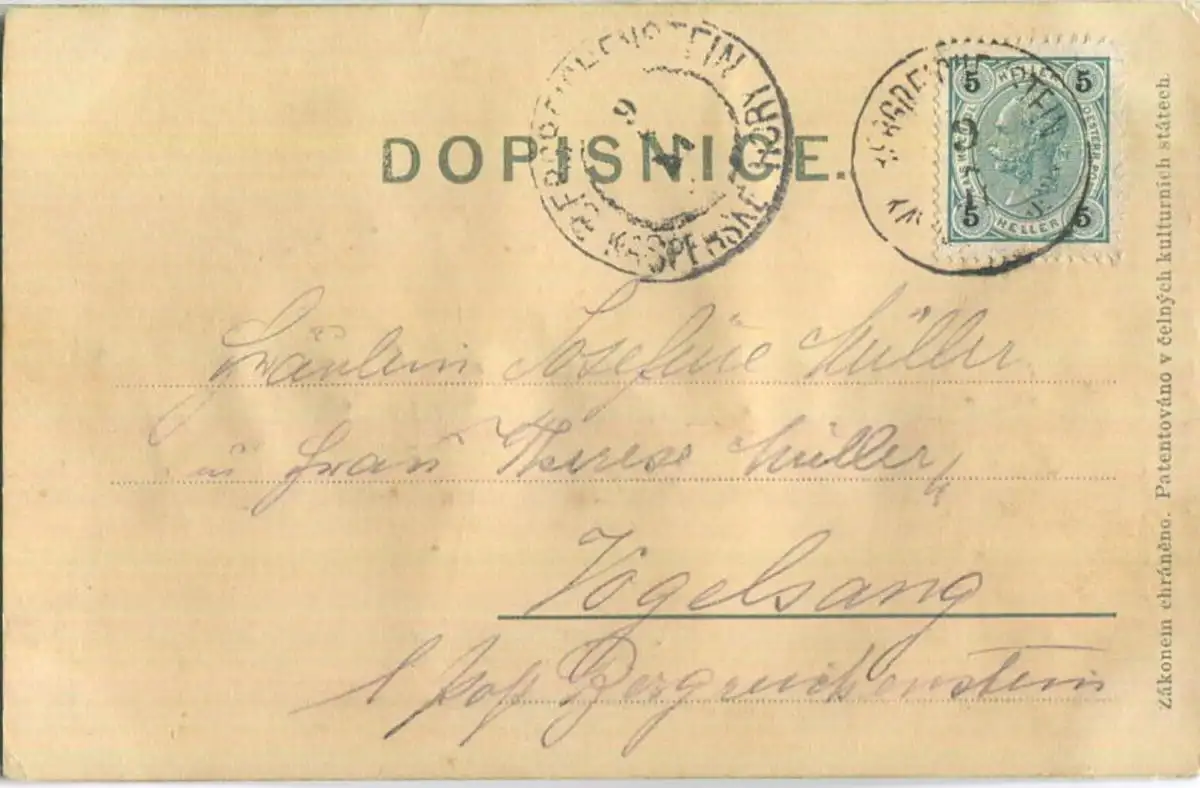 DOPISNICE.
BERGREICHENSTEIN
KAŠPERSKÉ HORY
9
5 HELLER 5
5 HELLER 5
Fräulein Josefine Müller
u Frau Therese Müller
Vogelsang
Post Bergreichenstein
Zákonem chráněno. Patentováno v čelných kulturních státech.